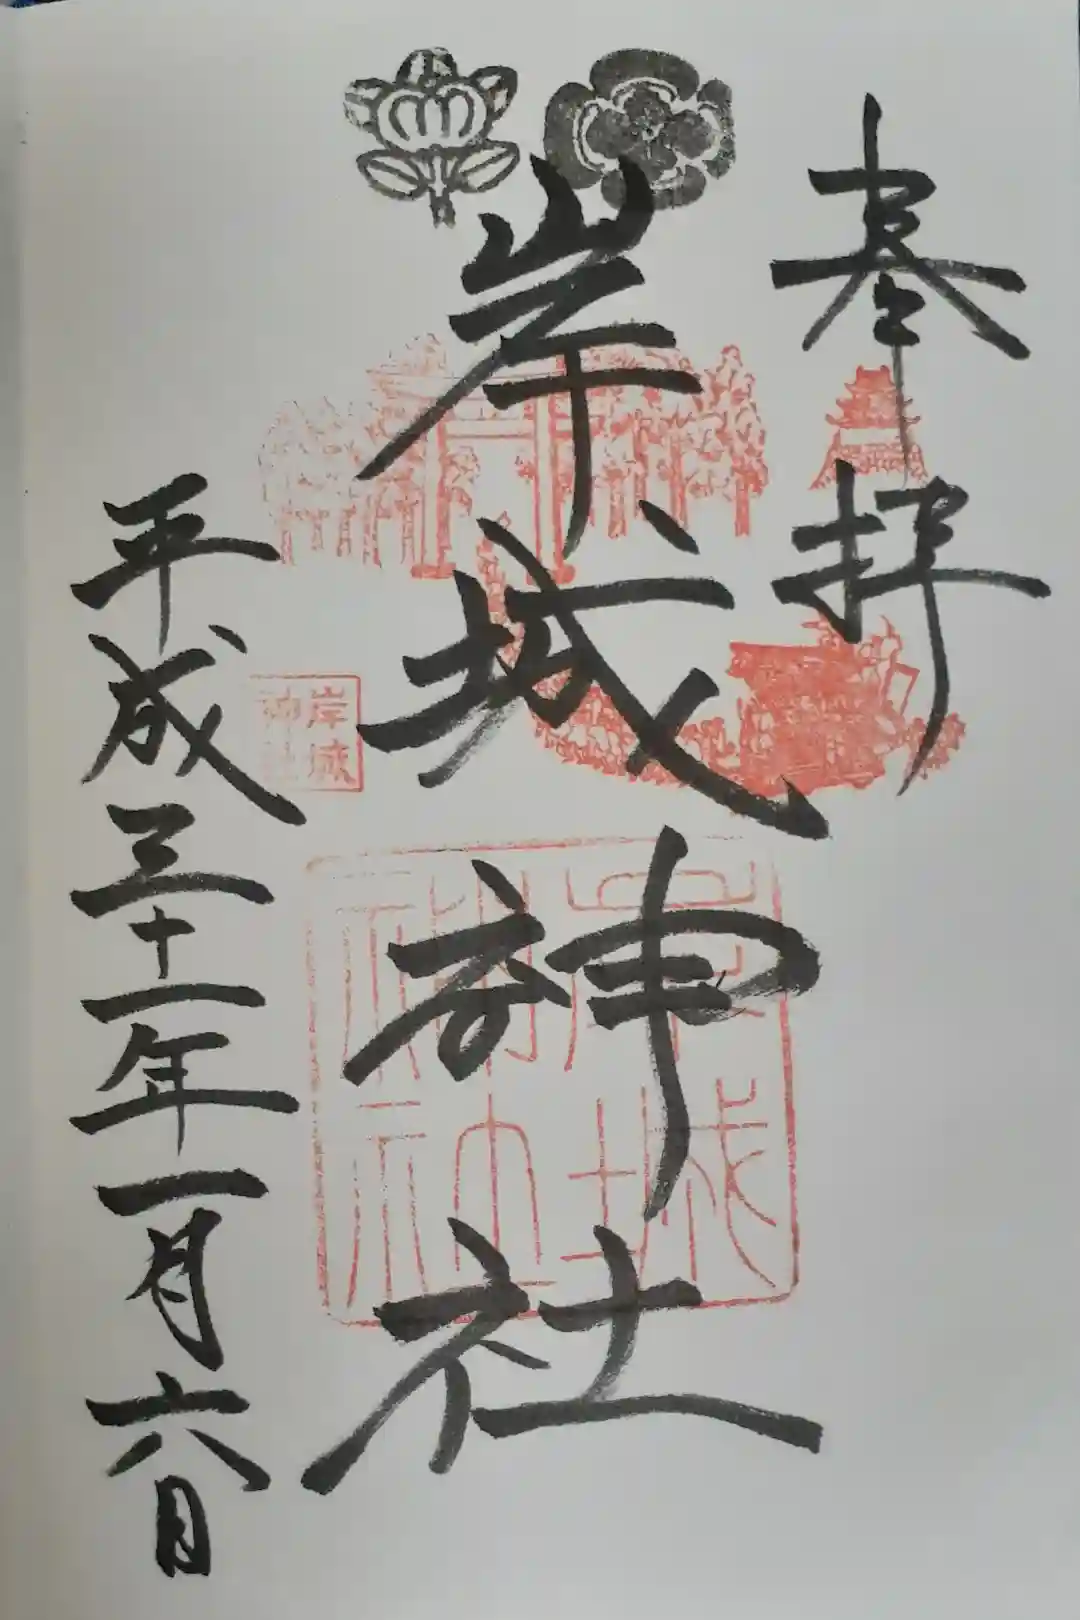 奉拝
岸城神社
平成三十一年一月六日
岸城
神社
岸城
神社